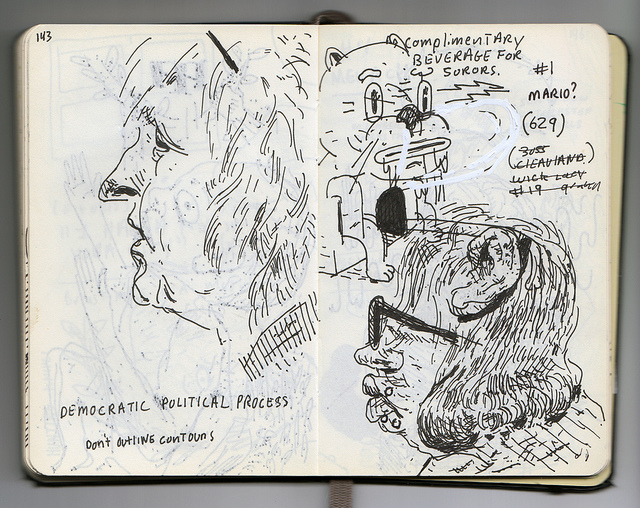 143
DEMOCRATIC POLITICAL PROCESS
DON'T OUTLINE CONTOURS
COMPLIMENTARY
BEVERAGE FOR
SORORS.
#1
MARIO?
(629)
3055
CLEAVLAND.)
#19